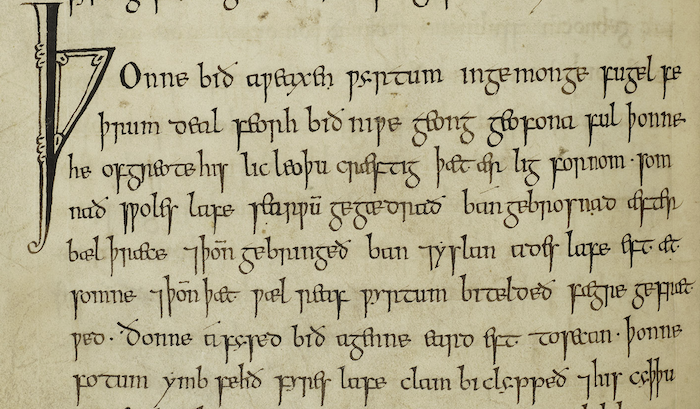 Þonne bið aƿeaxen ƿyrtum ingemonge fugel fe
þrum deal feorh bið niƿe geong geofona ful þonne
he ofgreote his lic leoþu cræftig þæt ær lig fornom · som
nað sƿoles lafe searƿū gegædrað ban gebrosnad æfter
bæl þræce ⁊þoñ gebringeð ban ⁊yslan ades lafe eft æt
somne ⁊þoñ þæt ƿæl reaf ƿyrtum biteldeð fægre gefræt
ƿed · Ðonne afysed bið agenne eard eft tosecan · þonne
fotum ymb fehð fyres lafe clam biclyppeð ⁊his cyþþu